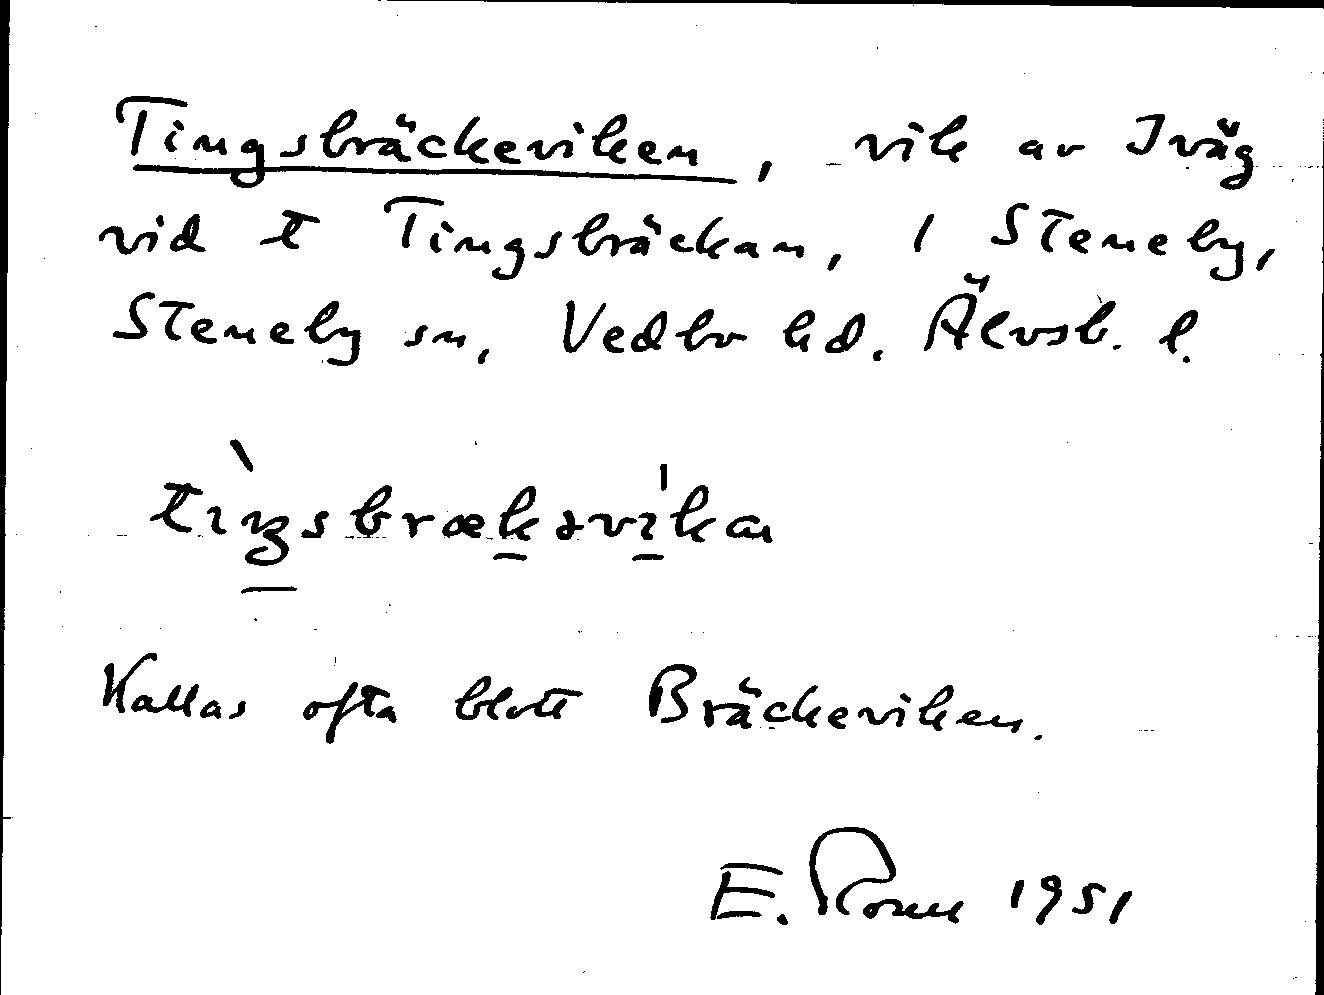 Tingsbräckeviken, vik av Iväg
vid t Tingsbräckan, 1 Steneby,
Steneby sn, Vedbo hd. Älvsb. l.
Kallas ofta blott Bräckeviken.
E. 1951